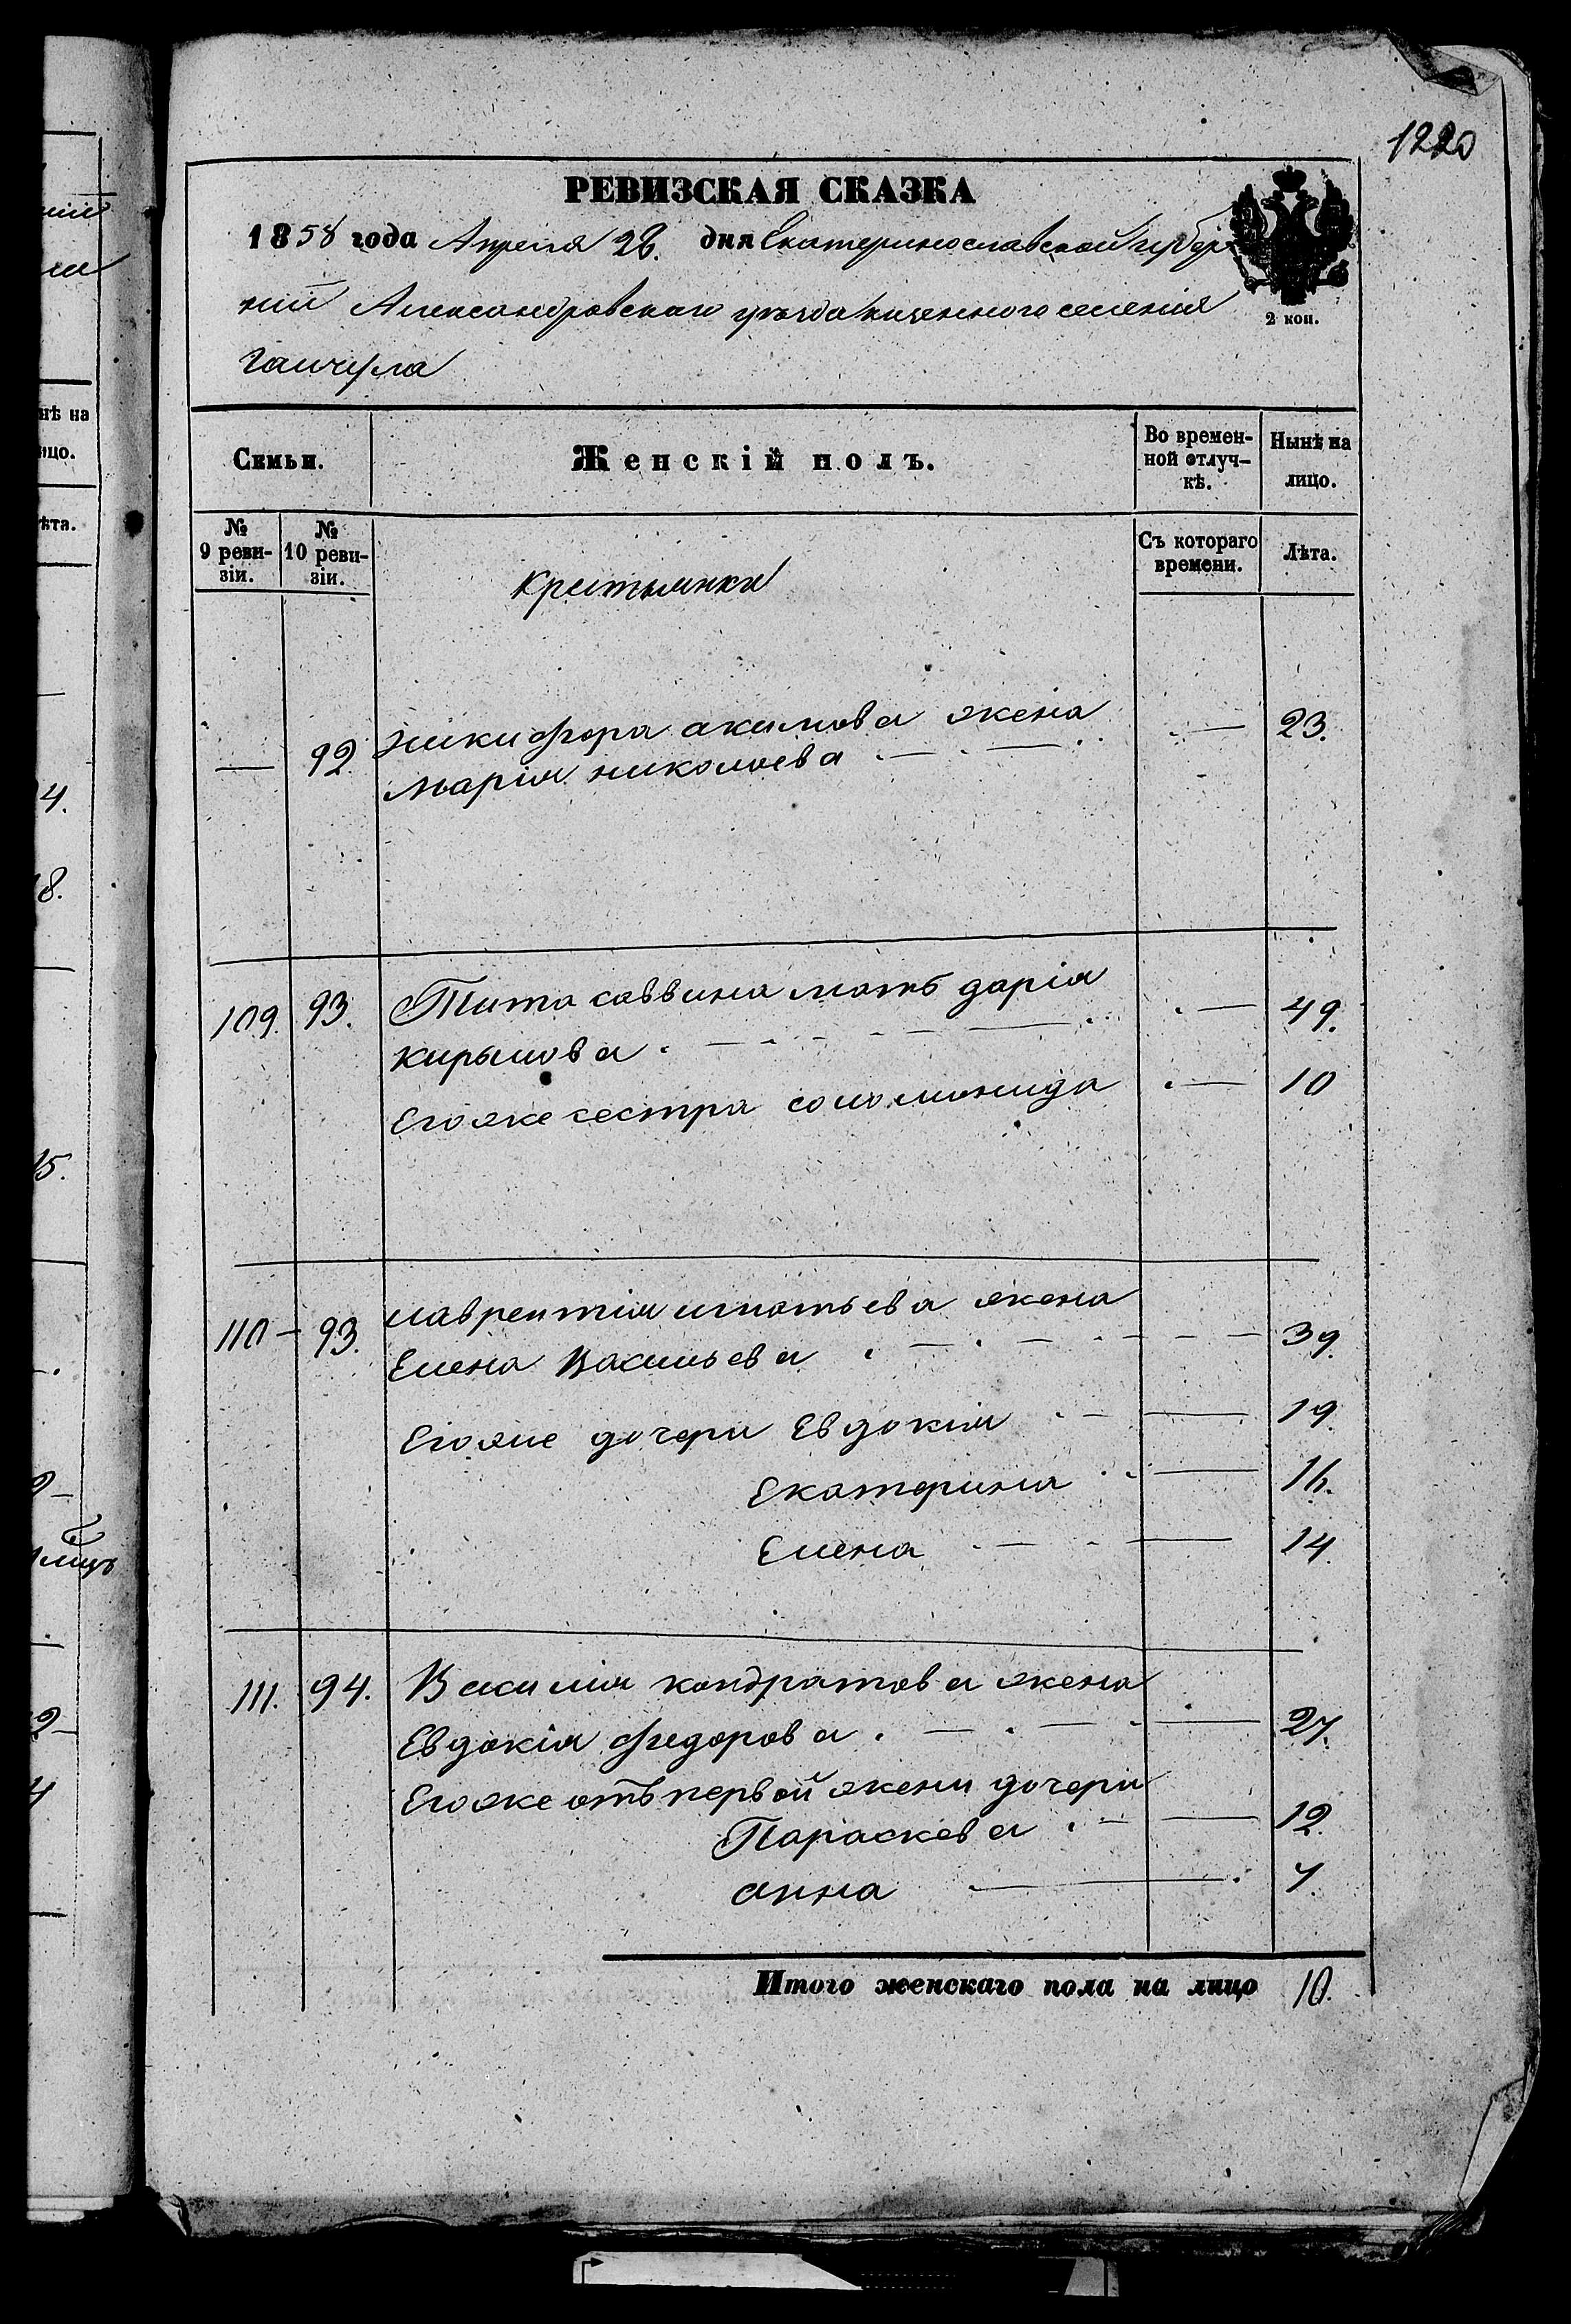 1220
РЕВИЗСКАЯ СКАЗКА
1858 года Апреля 28. дня Екатеринославской губер
нии Александровскаго уезда казенного селения
Гайчула
2 коп.
Семьи.
Женскій полъ.
Во времен-
ной отлуч-
кѣ.
Нынѣ на
лицо.
№
9 реви-
зіи.
№
10 реви-
зіи.
Крестьянки
Съ котораго
времени.
Лѣта.
— 92. Никифора акимова жена — 23.
Марія николаева
109. 93. Тита саввина мать дарія — 49.
кирылова
Егоже сестра соломонида — 10
110 — 93. лаврентія игнатьева жена
Елена Васильева — 39.
Егоже дочери Евдокія — 19
Екатерина — 16.
Елена — 14.
111. 94. Василія кондратова жена
Евдокія федорова — 27.
Егоже отъ первой жени дочери
Параскева — 12.
анна — 7.
Итого женскаго пола на лицо 10.
нѣ на
ицо.
ѣта.
4.
8.
15.